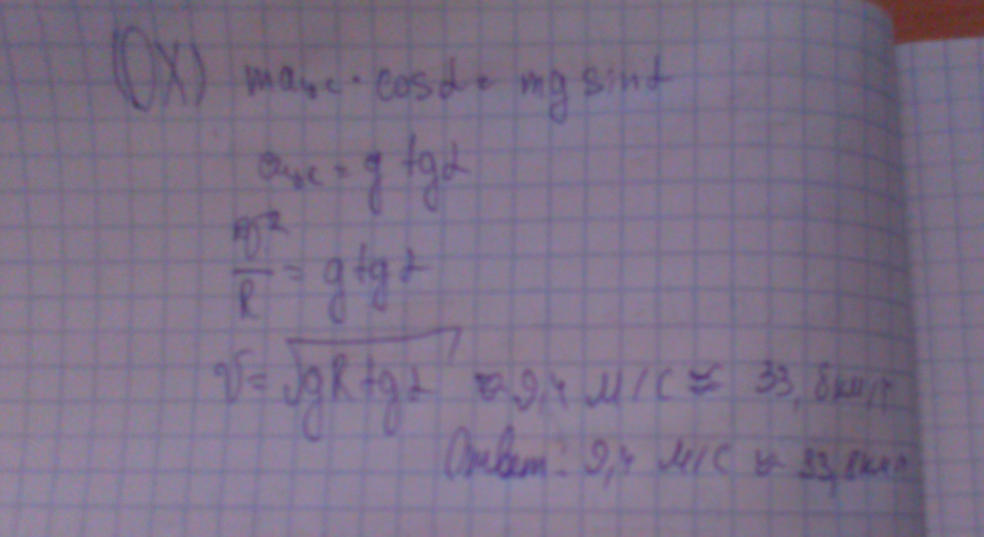 (OX) maцс · cosα = mg sinα
aцс = g tgα
v²/R = g tgα
v = √gR tgα ≈ 9,4 м/с ≈ 33,8 км/ч
Ответ: 9,4 м/с ≈ 33,8 км/ч